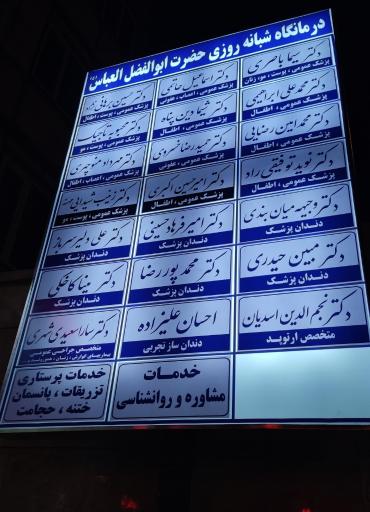 درمانگاه شبانه روزی حضرت ابوالفضل العباس (ع)
دکتر سیما باصری
پزشک عمومی، پوست، مو، زنان
دکتر اسماعیل حاتمی
پزشک عمومی، اعصاب، عفونی
دکتر حسین
پزشک عمومی، پوست، اطفال
دکتر محمدعلی ابراهیمی
پزشک عمومی، اطفال
دکتر شیما دین پناه
پزشک عمومی، اطفال
دکتر محبوبه تاجیک
پزشک عمومی، پوست، مو
دکتر محمدامین رضایی
پزشک عمومی، اطفال
دکتر حمیدرضا خسروی
پزشک عمومی، عفونی
دکتر مهرداد منوچهری
پزشک عمومی، اعصاب، اطفال
دکتر نوید توفیقی راد
پزشک عمومی، اطفال
دکتر امیرحسین اکبری
پزشک عمومی، اطفال
دکتر زینب
پزشک عمومی، پوست، مو
دکتر وجیهه میان بندی
دندان پزشک
دکتر امیر فرهاد حسینی
دندان پزشک
دکتر علی دلیر سرباز
دندان پزشک
دکتر مبین حیدری
دندان پزشک
دکتر محمد پوررضا
دندان پزشک
دکتر مینا کاخکی
دندان پزشک
دکتر نجم الدین اسدیان
متخصص ارتوپد
احسان علیزاده
دندان ساز تجربی
دکتر سارا سعیدی
متخصص جراحی عمومی
خدمات
مشاوره و روانشناسی
خدمات پرستاری
تزریقات، پانسمان
ختنه، حجامت